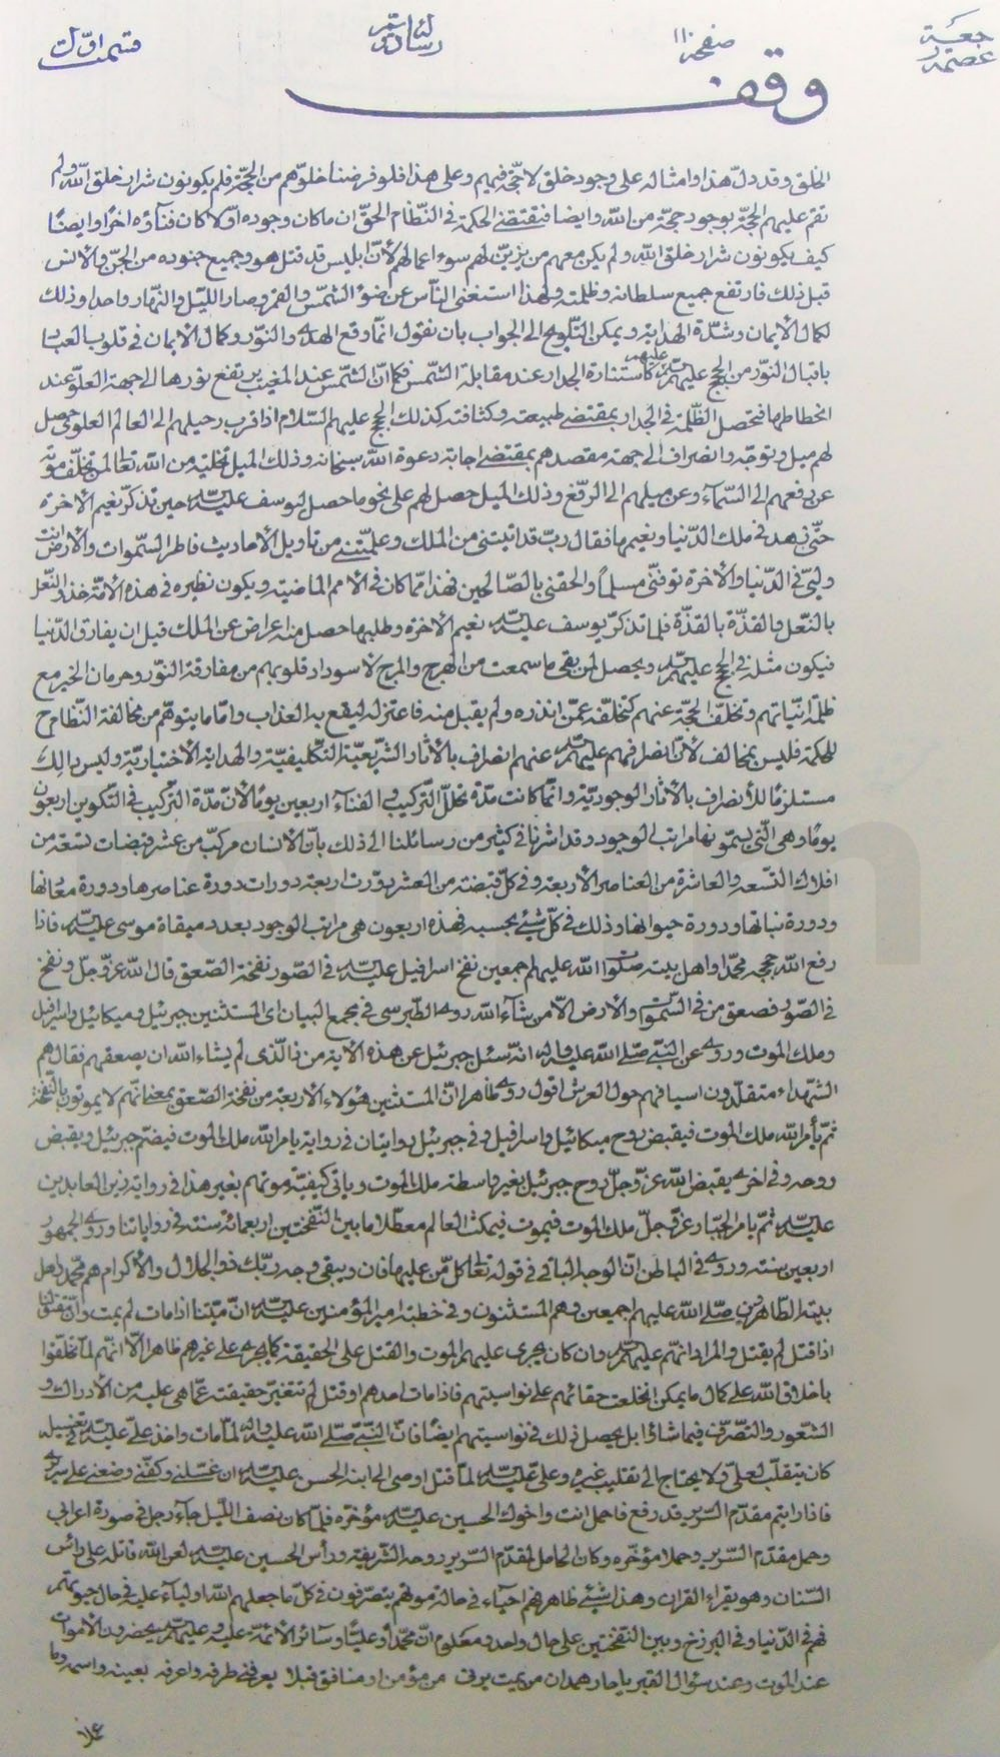 رجعية
عصمة
صفحة ١١٠
رسالة
قسمت اول
وقف
الخلق وقد دلّ هذا وامثاله على وجود خلق لا حجّة فيهم وعلى هذا فلو فرضنا خلوّهم من الحجّة فلم يكونون شرار خلق اللّه ولم
تقم عليهم الحجّة بوجود حجّة من اللّه وايضا فمقتضى الحكمة فى النّظام الحقّ ان ما كان وجوده اوّلا كان فناؤه اخرا وايضًا
كيف يكونون شرار خلق اللّه ولم يكن معهم من يزيّن لهم سوء اعمالهم لأنّ ابليس قد قتل هو وجميع جنوده من الجنّ والأنس
قبل ذلك فارتفع جميع سلطانه وظلمته ولهذا استغنى النّاس عن ضوء الشّمس والقمر وصار اللّيل والنّهار واحدا وذلك
لكمال الأيمان وشدّة الهداية ويمكن التّلويح الى الجواب بان نقول انّما وقع الهدى والنّور وكمال الأيمان فى قلوب العباد
باقبال النّور من الحجج عليهم كاستنارة الجدار عند مقابلة الشّمس فكما انّ الشّمس عند المغيب يرتفع نورها الى جهة العلوّ عند
انحطاطها فتحصل الظّلمة فى الجدار بمقتضى طبيعته وكثافته كذلك الحجج عليهم السّلام اذا قرب رحيلهم الى العالم العلوى حصل
لهم ميل وتوجّه وانصراف الى جهة مقصدهم بمقتضى اجابة دعوة اللّه سبحانه وذلك الميل تخلية من اللّه تعالى لمن تخلّف موته
عن رفعهم الى السّماء وعن ميلهم الى الرّفع وذلك الميل حصل لهم على نحو ما حصل ليوسف عليه حين تذكّر نعيم الاخرة
حتّى زهد فى ملك الدّنيا ونعيمها فقال ربّ قد اتيتنى من الملك وعلّمتنى من تأويل الأحاديث فاطر السّموات والأرض انت
وليّى فى الدّنيا والأخرة توفّنى مسلماً والحقنى بالصّالحين فهذا ممّا كان فى الأمم الماضية ويكون نظيره فى هذه الأمّة حذو النّعل
بالنّعل والقذّة بالقذّة فلما تذكّر يوسف عليه نعيم الأخرة وطلبها حصل منه اعراض عن الملك قبل ان يفارق الدّنيا
فيكون مثله فى الحجج عليهم ويحصل لمن بقى ما سمعت من الهرج والمرج لاسوداد قلوبهم من مفارقة النّور وحرمان الخير مع
ظلمة انّياتهم وتخلّف الحجّة عنهم كتخلّفه عمّن انذره ولم يقبل منه فاعتزله ليقع به العذاب وامّا ما يتوهّم من مخالفة النّظام ح
للحكمة فليس بمخالف لأنّ انصرافهم عليهم عنهم انصراف بالأثار الشّرعيّة التّكليفيّة والهداية الأختياريّة وليس ذالك
مستلزمًا للأنصراف بالأثار الوجوديّة وانّما كانت مدّة تحلل التّركيب فى الفناء اربعين يومًا لأنّ مدّة التّركيب فى التّكوين اربعون
يومًا وهى الّتى يسمّونها مراتب الوجود وقد اشرنا فى كثير من رسائلنا الى ذلك بانّ الأنسان مركّب من عشر قبضات تسعة من
افلاك التّسعه والعاشرة من العناصر الأربعة وفى كلّ قبضته من العشر دوّرت اربعة دورات دورة عناصرها ودورة معدنها
ودورة نباتها ودورة حيوانها وذلك فى كلّ شيئ بحسبه فهذه اربعون هى مراتب الوجود بعدد ميقات موسى عليه فاذا
رفع اللّه حججه محمّدا واهل بيته صلوات اللّه عليهم اجمعين نفخ اسرافيل عليه فى الصّور نفخة الصّعق قال اللّه عزّ وجلّ ونفخ
فى الصّور فصعق من فى السّموات والأرض الّا من شاء اللّه روى الطّبرسى فى مجمع البيان اى المستثنين جبرئيل وميكائيل واسرافيل
وملك الموت وروى عن النّبى صلّى اللّه عليه واله انّه سئل جبرئيل عن هذه الأية من ذا الّذى لم يشاء اللّه ان يصعقهم فقال هم
الشّهداء متقلّدون اسيافهم حول العرش اقول روى ظاهرا انّ المستثنين هؤلاء الأربعة من نفخة الصّعق بمعنى انّهم لا يموتون بالنّفخة
ثمّ يأمر اللّه ملك الموت فيقبض روح ميكائيل واسرافيل وفى جبرئيل روايتان فى رواية يامر اللّه ملك الموت فيضمّ جبرئيل ويقبض
روحه وفى اخرى يقبض اللّه عزّ وجلّ روح جبرئيل بغير واسطة ملك الموت ويأتى كيفيّة موتهم بغير هذا فى رواية زين العابدين
عليه ثمّ يامر الجبّار عزّ وجلّ ملك الموت فيموت فيمكث العالم معطّلا ما بين النّفختين اربعمائة سنة فى رواياتنا وروى الجمهور
اربعين سنه وروى فى الباطن انّ الوجه الباقى فى قوله تعالى كلّ من عليها فان ويبقى وجه ربّك ذو الجلال والأكرام هم محمّد واهل
بيته الطّاهرين صلّى اللّه عليهم اجمعين وهم المستثنون وفى خطبة امير المؤمنين عليه انّ ميّتنا اذا مات لم يمت وانّ مقتولنا
اذا قتل لم يقتل والمراد انّهم عليهم وان كان يجرى عليهم الموت والقتل على الحقيقة كما يجرى على غيرهم ظاهرا الّا انّهم لما تخلّقوا
باخلاق اللّه على كمال ما يمكن انخلعت حقائقهم على نواسيتهم فاذا مات احدهم او قتل لم تتغيّر حقيقته عمّا هى عليه من الأدراك و
الشّعور والتّصرّف فيما شاؤا بل يحصل ذلك فى نواسيتهم ايضًا فانّ النّبى صلّى اللّه عليه واله لمّا مات واخذ علىّ عليه فى تغسيله
كان يتقلّب لعلىّ ولا يحتاج الى تقليب غيره وعلىّ عليه لمّا قتل اوصى الى ابنه الحسن عليه ان غسّلنى وكفّنى وضعنى على سريرى
فاذا رايتم مقدّم السّرير قد رفع فاحمل انت واخوك الحسين عليه مؤخّره فلمّا كان نصف اللّيل جاء رجل فى صورة اعرابى
وحمل مقدّم السّرير وحملا مؤخّره وكان الحامل لمقدّم السّرير روحه الشّريفة ورأس الحسين عليه لعن اللّه قاتله على رأس
السّنان وهو يقراء القران وهذا شيئ ظاهر فهم احياء فى حالة موتهم يتصرّفون فى كلّ ما جعلهم اللّه اولياء عليه فى حال حيوتهم
فهم فى الدّنيا وفى البرزخ وبين النّفختين على حال واحد ومعلوم انّ محمّدا وعليّا وسائر الأئمّة عليه وعليهم يحضرون الأموات
عند الموت وعند سؤال القبر يا حار همدان من يمت يرنى من مؤمن او منافق قبلا يعرفنى طرفه واعرفه بعينه واسمه وما
عملا